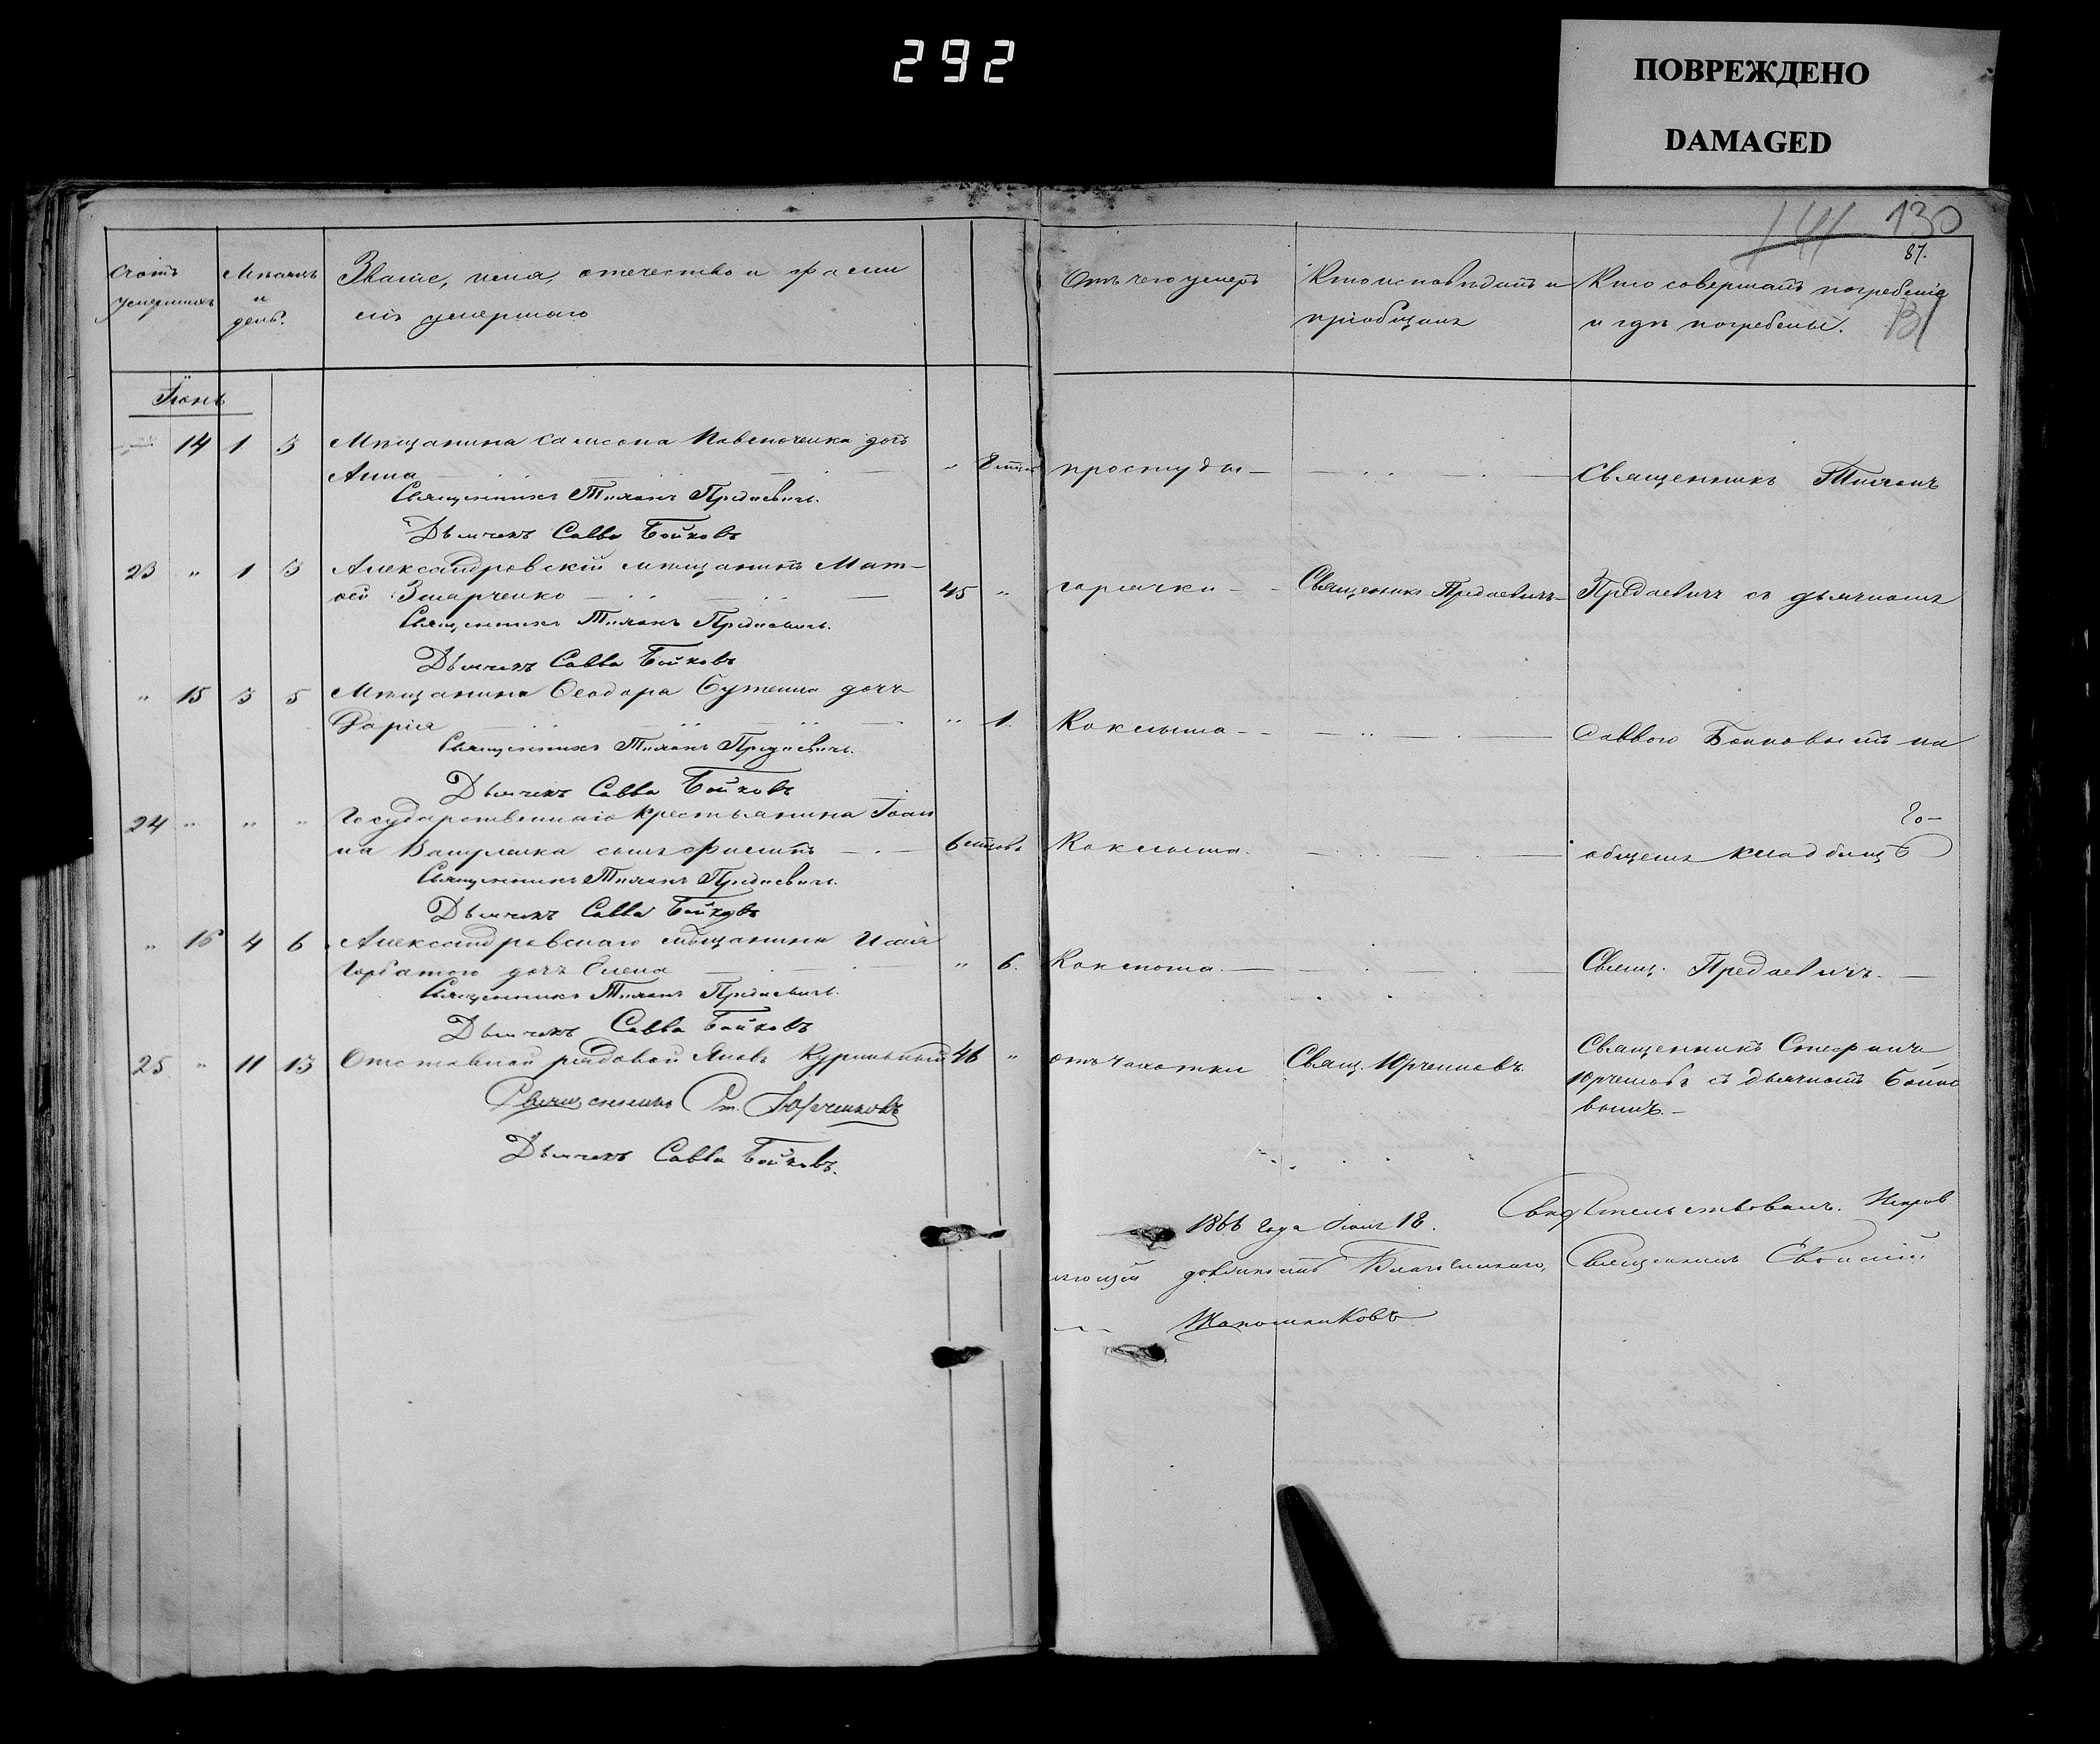 292
ПОВРЕЖДЕНО
DAMAGED
141 130
87.
131
Счотъ умершихъ
Мѣсяцъ и день.
Званіе, имя, отечество и фами
лія умершаго
Отъ чего умеръ
Кто исповѣдалъ и
пріобщалъ
Кто совершалъ погребеніе
и гдѣ погребены.
Іюнь
14 1 3 Мѣщанина Самсона дочь
Анна — " простуды — Священникъ Тихонъ
Священникъ Тихонъ Предаевичъ.
Дьячекъ Савва Бойковъ
23 " 1 3 Александровскій мѣщанинъ Мат-
ѳей Змарченко — 45 " горячки - Священникъ Предаевичъ Предаевичъ съ дьячкомъ
Священникъ Тихонъ Предаевичъ.
Дьячекъ Савва Бойковъ
" 15 3 5 Мѣщанина Ѳеодора Бутенка дочь
Дарія — " 1. Коклюша - Саввою Бойковымъ на
Священникъ Тихонъ Предаевичъ.
Дьячекъ Савва Бойковъ
24 " " " Государственнаго крестьянина Іоан
на сынъ Филипъ — 6 Коклюша. общемъ кладбищѣ
Священникъ Тихонъ Предаевичъ.
Дьячекъ Савва Бойковъ
" 16 4 6 Александровскаго мѣщанина Исаія
Горбатого дочь Елена " 6. Коклюша. — Свящ. Предаевичъ. —
Священникъ Тихонъ Предаевичъ.
Дьячекъ Савва Бойковъ
25. " 11 13 Отставной рядовой Яковъ 46 " отъ чахотки Свящ. Юрченковъ. Священникъ Стефанъ
Юрченковъ съ дьячкомъ Бойко
вымъ. —
Священникъ Ст. Юрченковъ
Дьячекъ Савва Бойковъ.
1866 года 18. Свидѣтельствовалъ. Исправ
ляющій должность Благочиннаго, Священникъ
Шапошниковъ